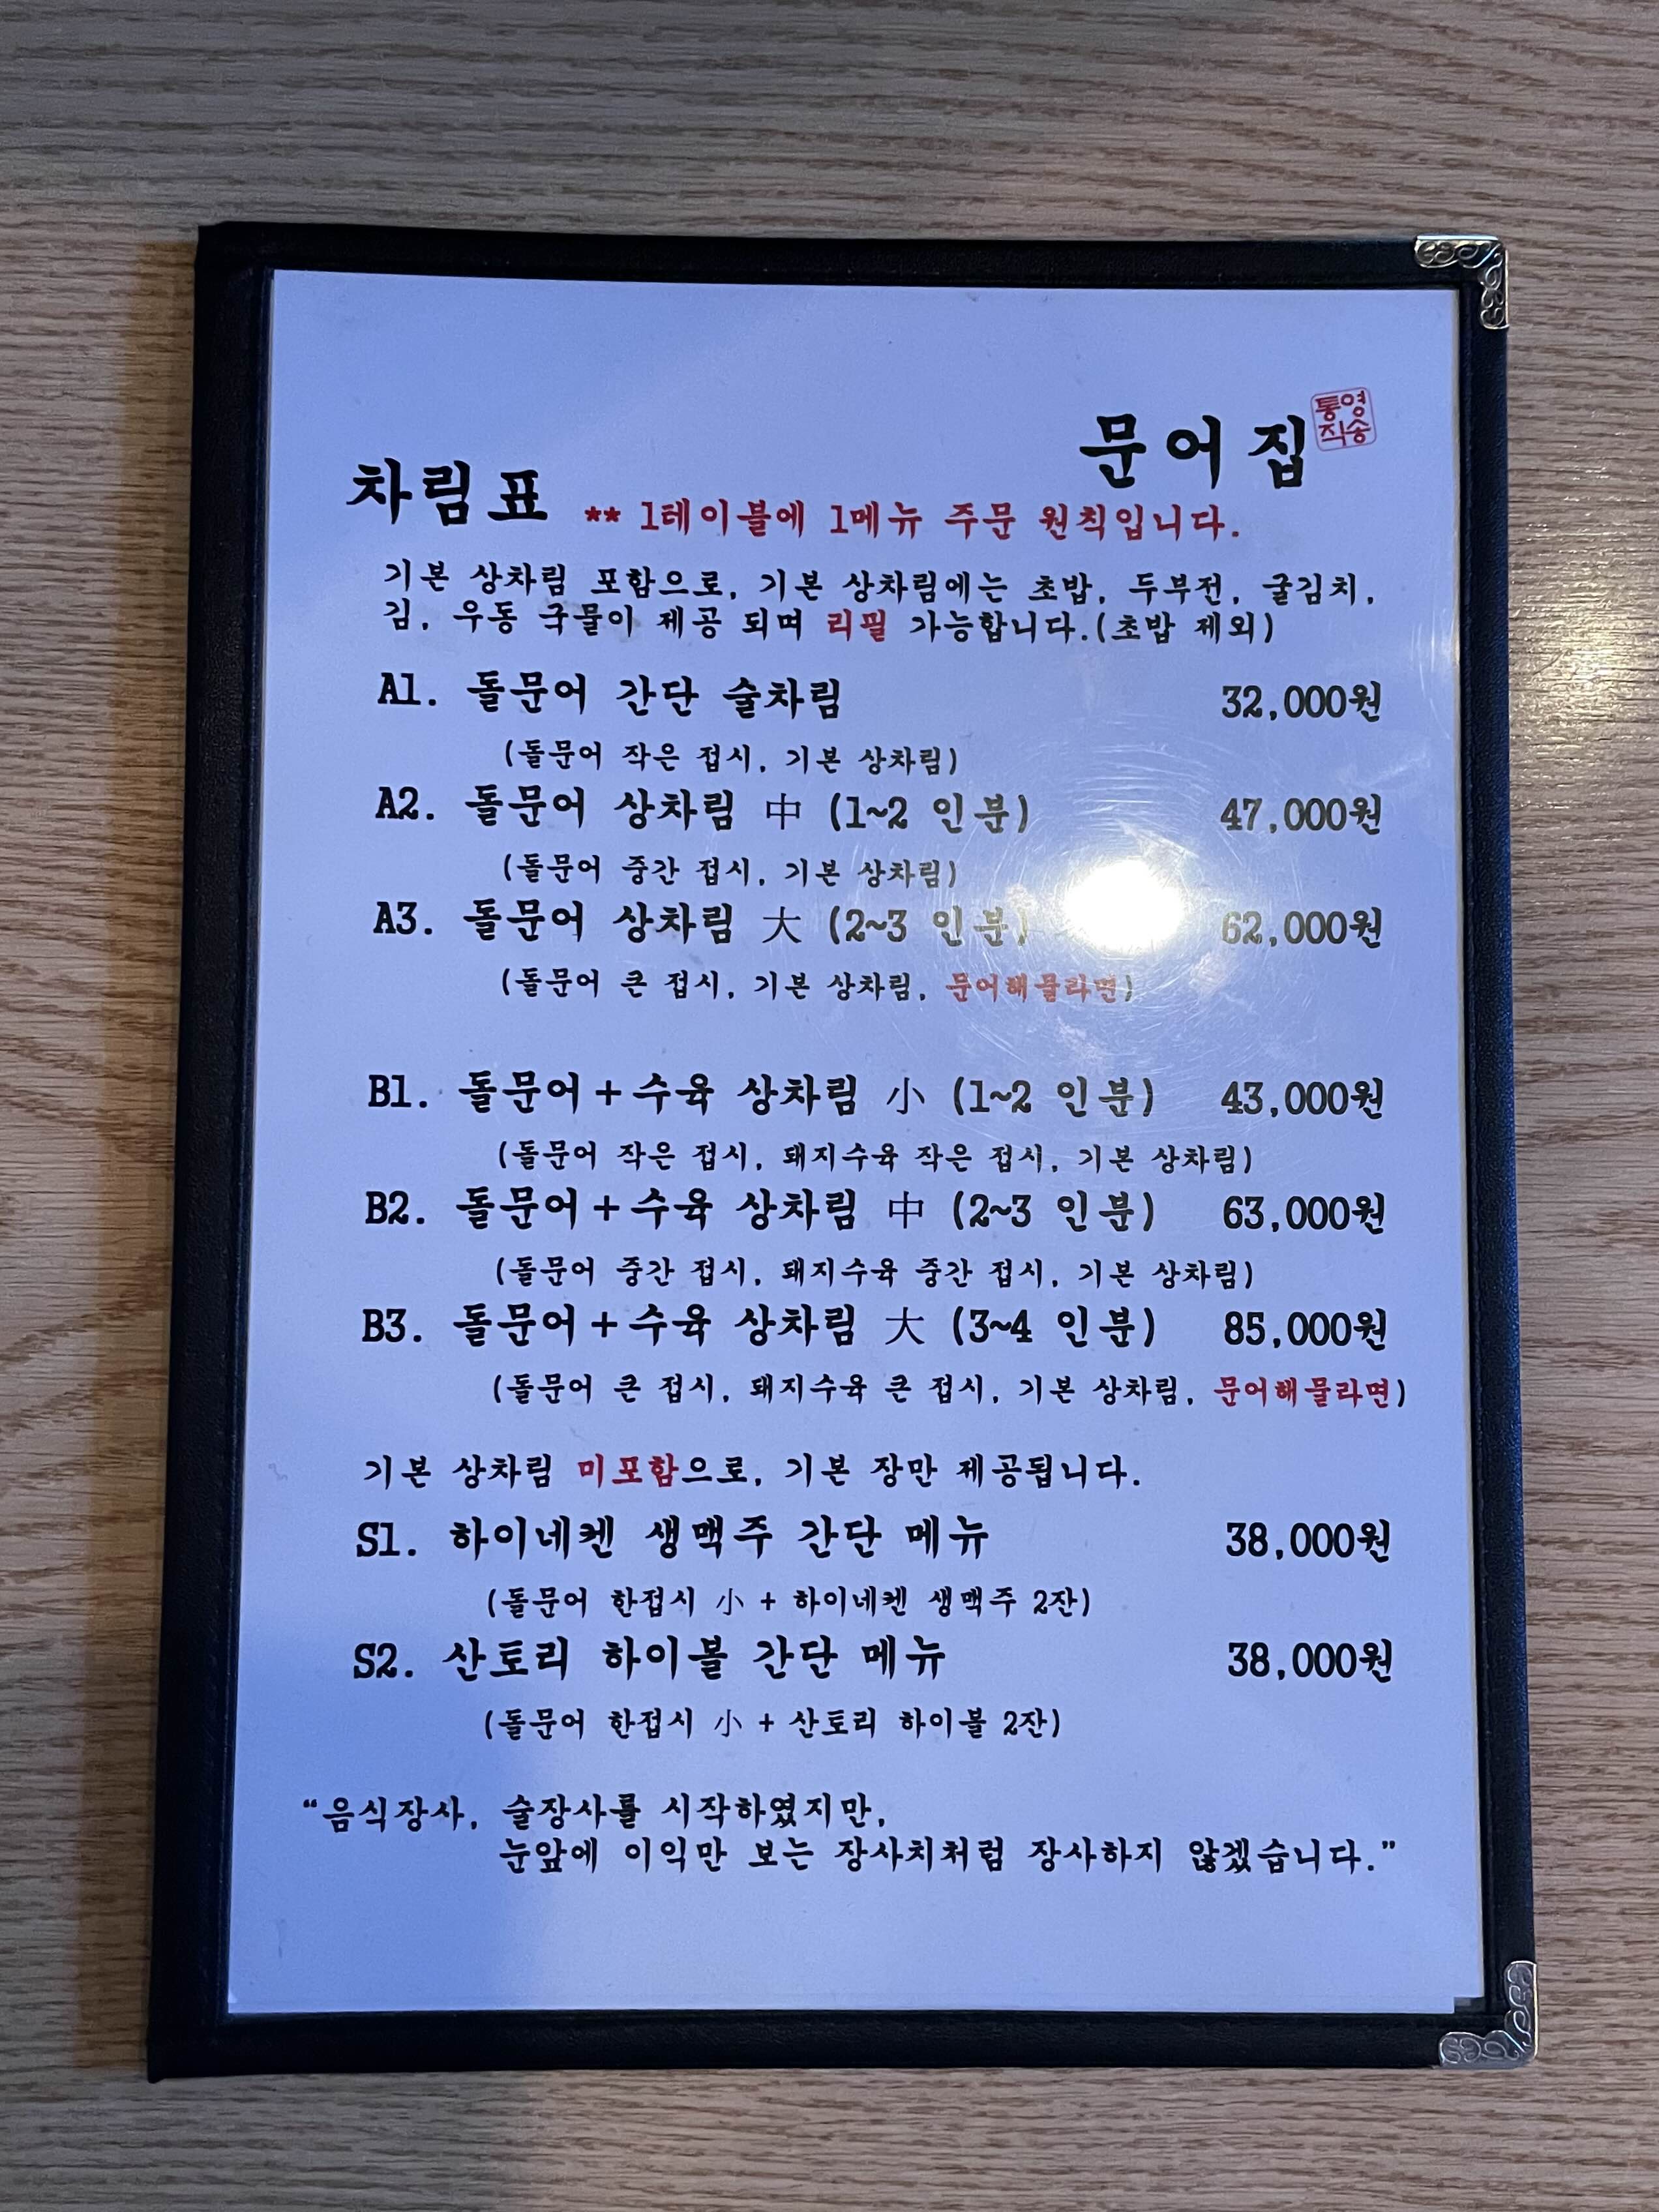 문어집
통영
직송
차림표
** 1테이블에 1메뉴 주문 원칙입니다.
기본 상차림 포함으로, 기본 상차림에는 초밥, 두부전, 굴김치,
김, 우동 국물이 제공 되며 리필 가능합니다.(초밥 제외)
A1. 돌문어 간단 술차림 32,000원
(돌문어 작은 접시, 기본 상차림)
A2. 돌문어 상차림 中 (1~2 인분) 47,000원
(돌문어 중간 접시, 기본 상차림)
A3. 돌문어 상차림 大 (2~3 인분) 62,000원
(돌문어 큰 접시, 기본 상차림, 문어해물라면)
B1. 돌문어+수육 상차림 小 (1~2 인분) 43,000원
(돌문어 작은 접시, 돼지수육 작은 접시, 기본 상차림)
B2. 돌문어+수육 상차림 中 (2~3 인분) 63,000원
(돌문어 중간 접시, 돼지수육 중간 접시, 기본 상차림)
B3. 돌문어+수육 상차림 大 (3~4 인분) 85,000원
(돌문어 큰 접시, 돼지수육 큰 접시, 기본 상차림, 문어해물라면)
기본 상차림 미포함으로, 기본 장만 제공됩니다.
S1. 하이네켄 생맥주 간단 메뉴 38,000원
(돌문어 한접시 小 + 하이네켄 생맥주 2잔)
S2. 산토리 하이볼 간단 메뉴 38,000원
(돌문어 한접시 小 + 산토리 하이볼 2잔)
“음식장사, 술장사를 시작하였지만,
눈앞에 이익만 보는 장사치처럼 장사하지 않겠습니다.”